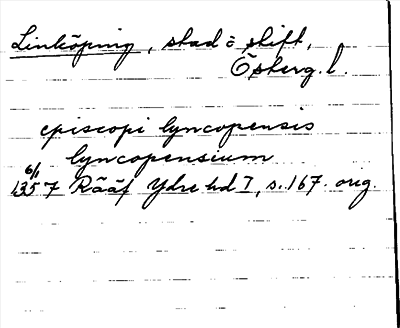 Linköping, stad o stift,
Österg. l.
episcopi lyncopensis
lyncopensium
6/1
1357 Rääf Ydre hd I, s. 167. orig.